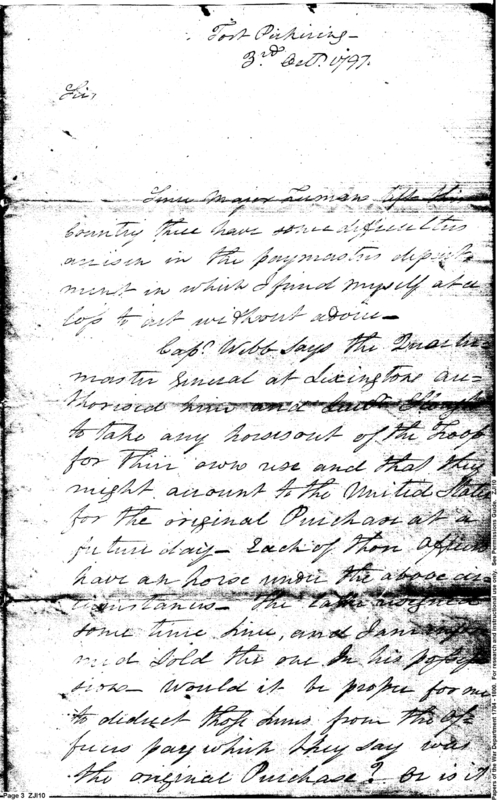 Fort Pickering
3rd Octr. 1797.
Sir,
Since Major Lemans left this
Country there have some difficulties
arisen in the paymasters depart-
ment in which I find myself at a
loss to act without advice—
Capt. Webb Says the Quarter
master General at Lexington au-
thorised him and Lieut.
to take any horses out of the Troop
for their own use and that they
might account to the United States
for the original Purchase at a
future day— Each of thos Officers
have an horse under the above cir-
cumstances— The latter resigned
some time since, and I am infor
med sold the one In his posses
sion— Would it be proper for me
to diduct thos Sums from the Of-
ficers pay which they say was
the original Purchase? Or is it
Page 3 ZJI10
Papers of the War Department 1784 - 1800. For research and instructional use only. See Permissions Guide. ZJI10